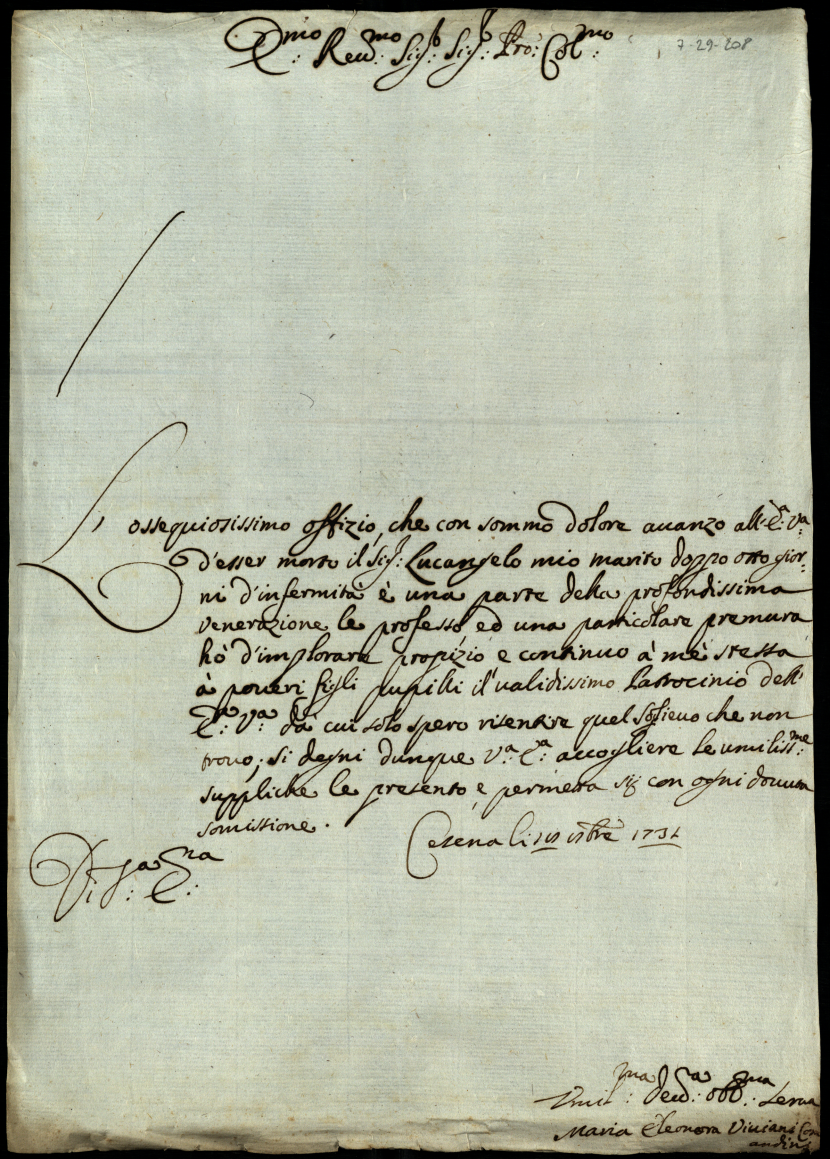 E.mo Rev.mo Sig.r Sig.r Pro: Col.mo
7-29-208
L'ossequiosissimo offizio, che con sommo dolore avanzo all'E.a V.a
d'esser morto il Sig.r Lucangelo mio marito doppo otto gior-
ni d'infermità è una parte della profondissima
venerazione le professo, ed una particolare premura
hò d'implorare propizio e continuo à mè stessa
à poveri figli pupilli il validissimo Patrocinio dell'
E.a V.a da cui solo spero risentire quel sollievo che non
trovo; si degni dunque V.a E.a accogliere le umiliss.me
suppliche le presento e permetta sij con ogni dovuta
somissione.
Cesena li 1731
Di V.a E.nza
Umil.ma dev.a obb.ma Serva
Maria Eleonora Viviani Com
andini